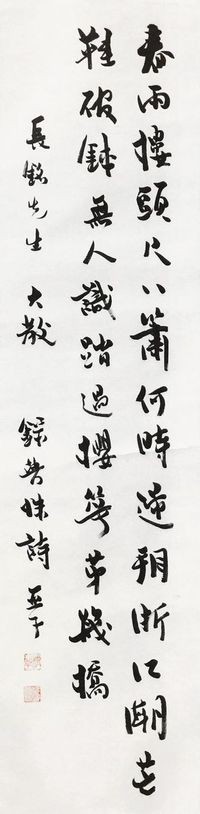 春雨樓頭尺八簫何時浙江潮芒
鞋破鉢無人識踏過櫻花第幾橋
長銘先生 大教 錄曼殊詩 亞子